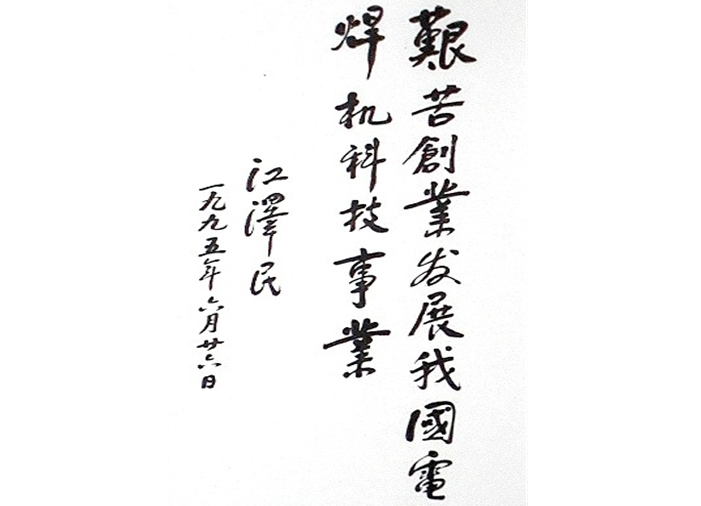 艱苦創業发展我國電
焊机科技事業
江澤民
一九九五年六月廿六日